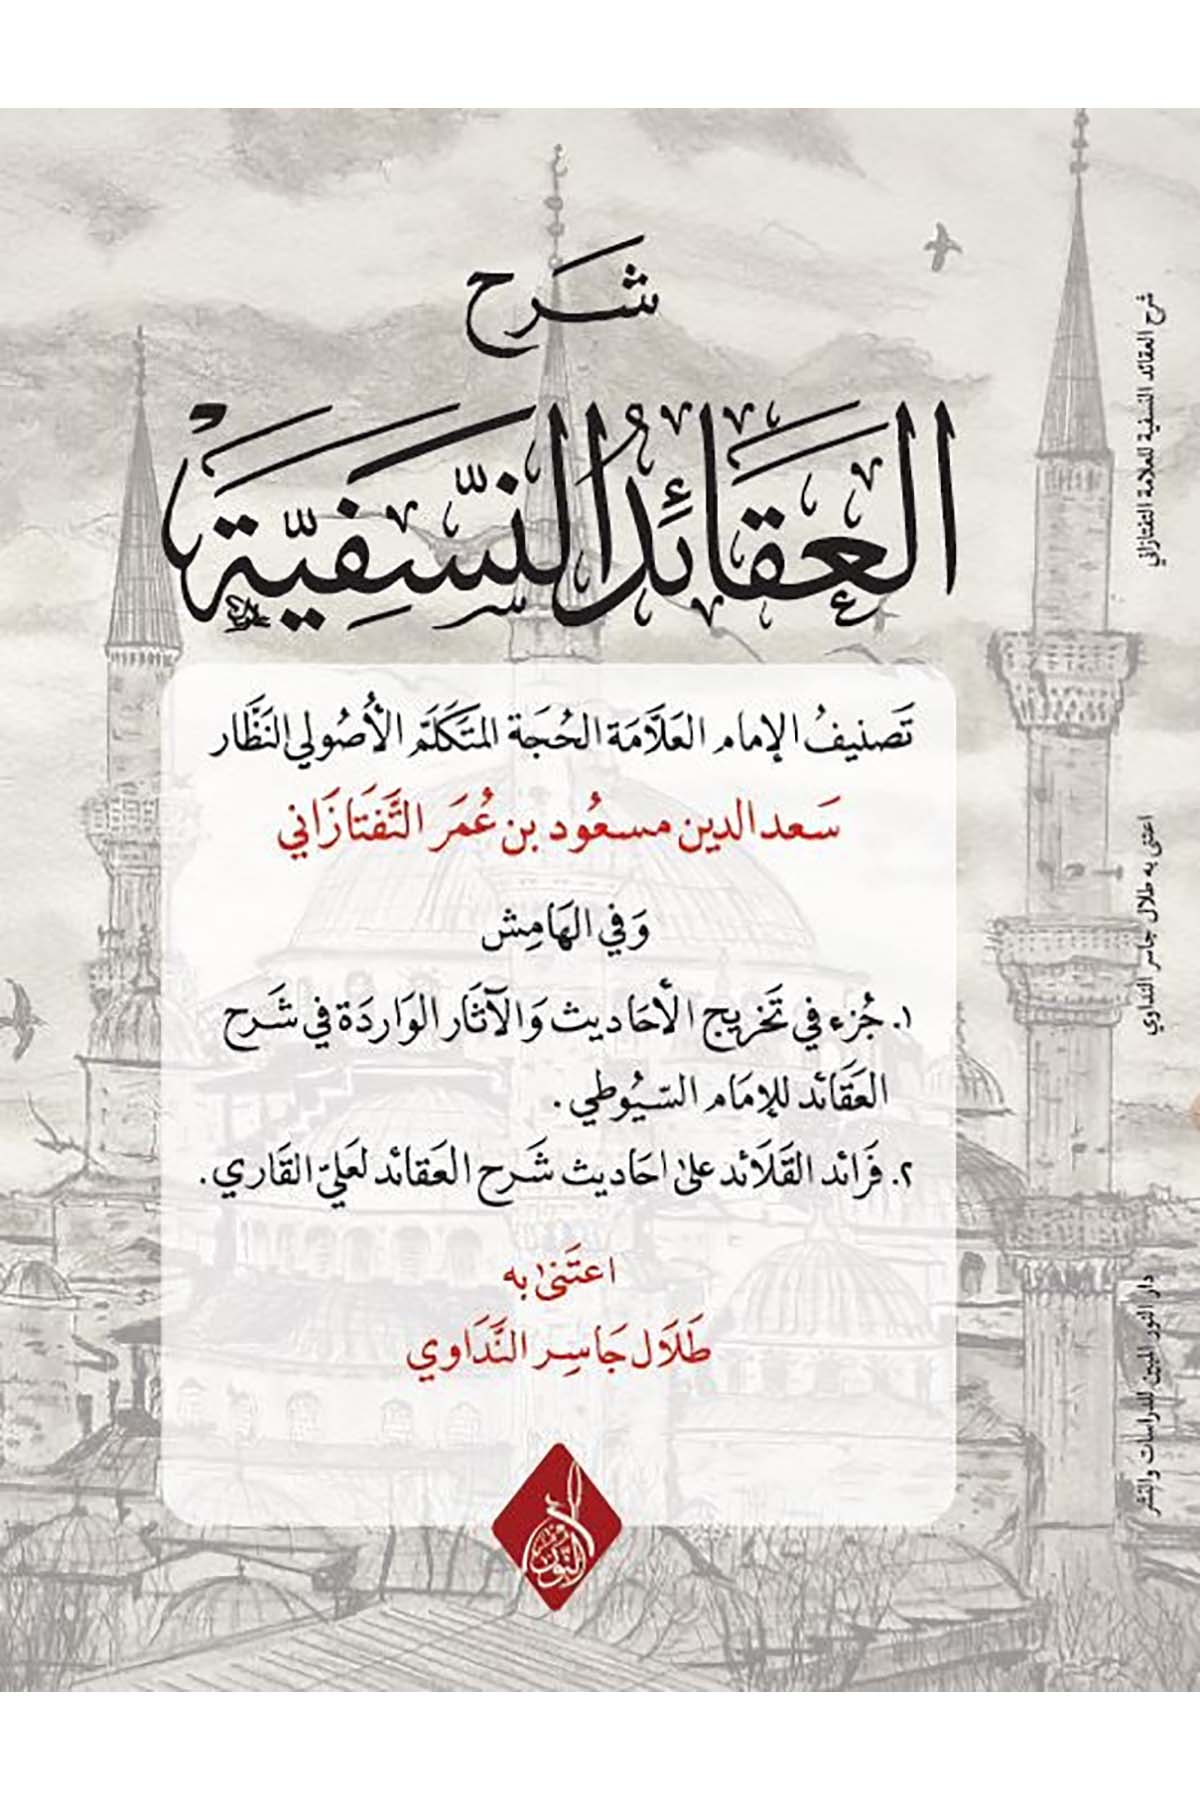 شَرح
العَقَائدُ النّسَفِيّة
تَصنيفُ الإمام العَلَّامَة الحُجَة المتَكَلّم الأُصُولي النَظَّار
سَعد الدين مسعُود بن عُمَر التَّفتَازَاني
وَفي الهَامِش
١. جُزء في تَخريج الأحَاديث وَالآثَار الوَاردَة في شَرح
العَقَائد للإمَام السّيُوطي.
٢. فَرائد القَلَائد على احَاديث شَرح العَقائد لعَليّ القَاري.
اعتَنى به
طَلَال جَاسِر النَّدَاوي
النّور
شرح العقائد النسفية للعلامة التفتازاني
اعتنى به طلال جاسر النداوي
دار النور المبين للدراسات والنشر